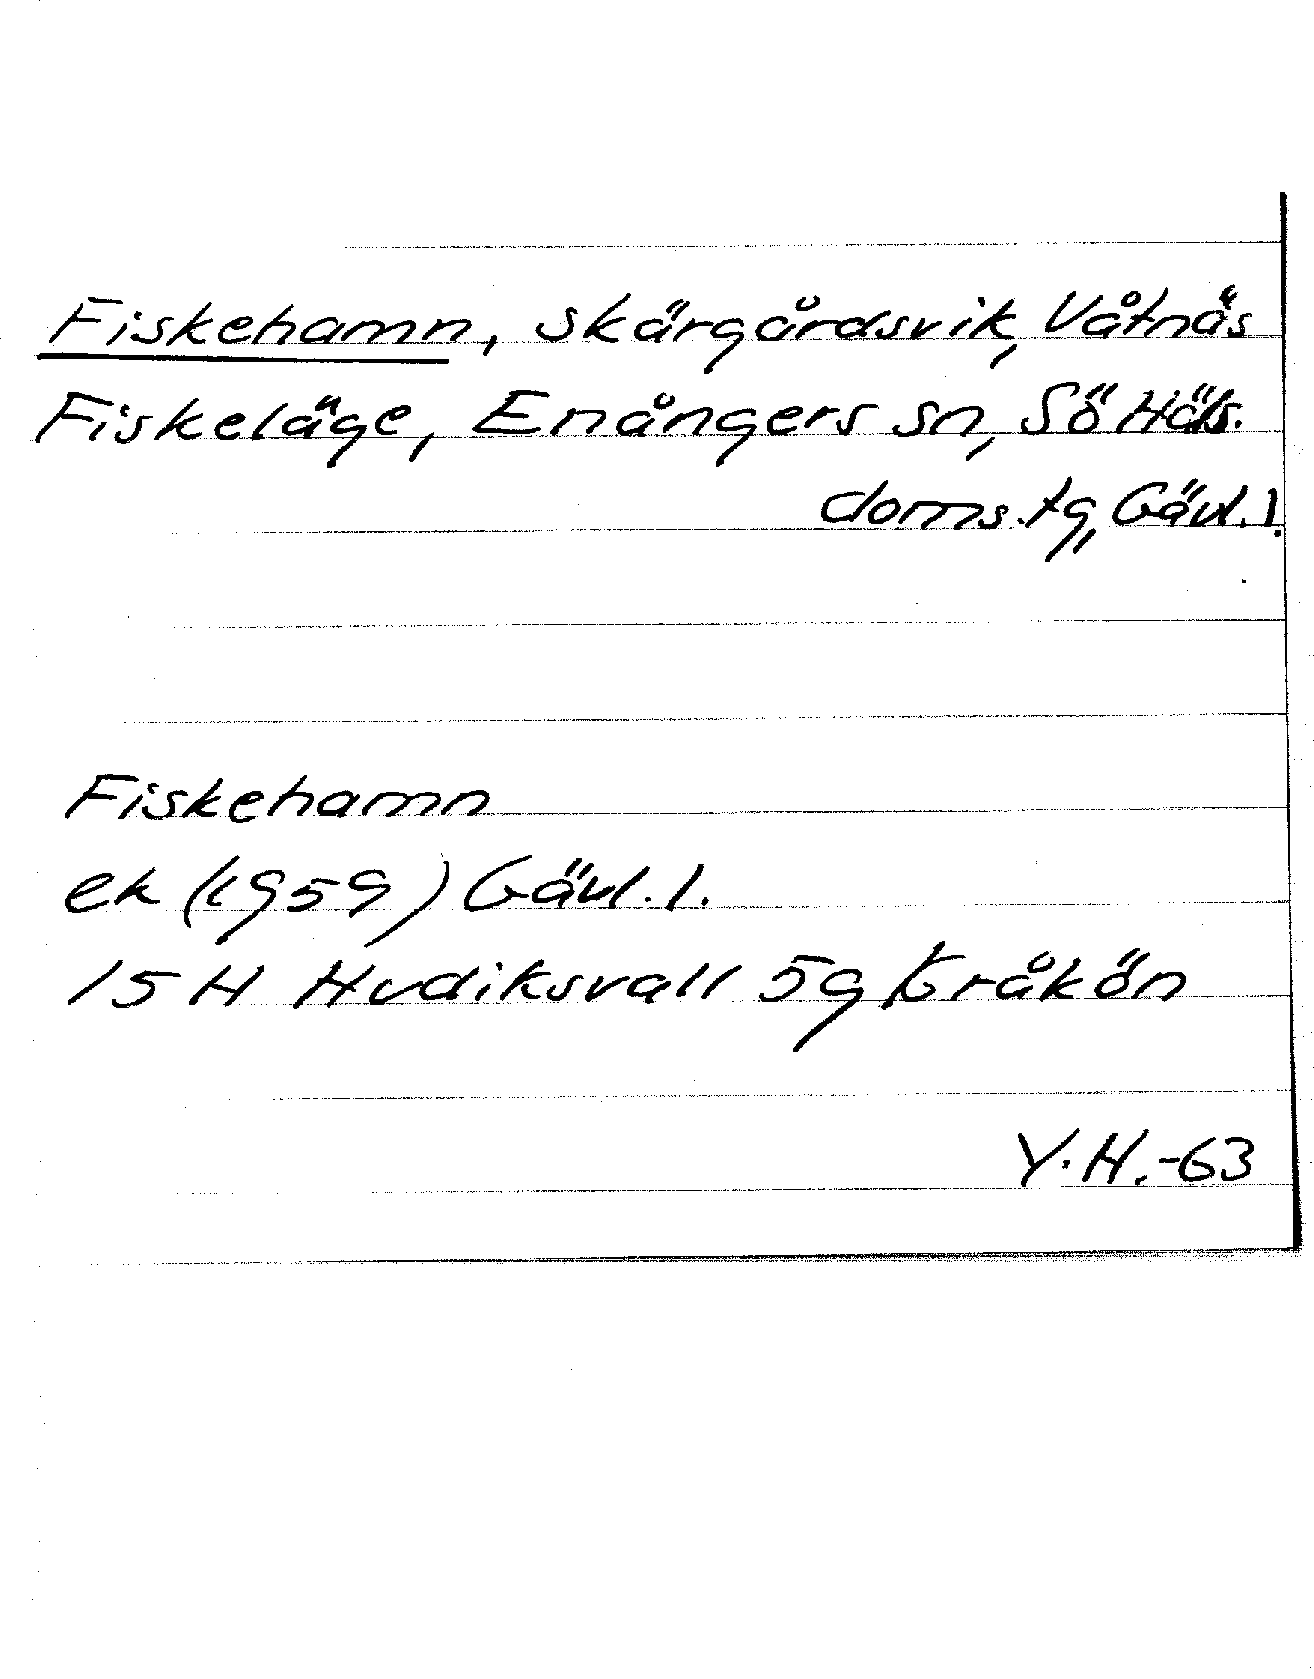 Fiskehamn, skärgårdsvik, Våtnäs
Fiskeläge, Enångers sn, Sö Häls.
doms.tg, Gävl.l.
Fiskehamn
ek (1959) Gävl.l.
15 H Hudiksvall 5g Kråkön
Y.H.-63